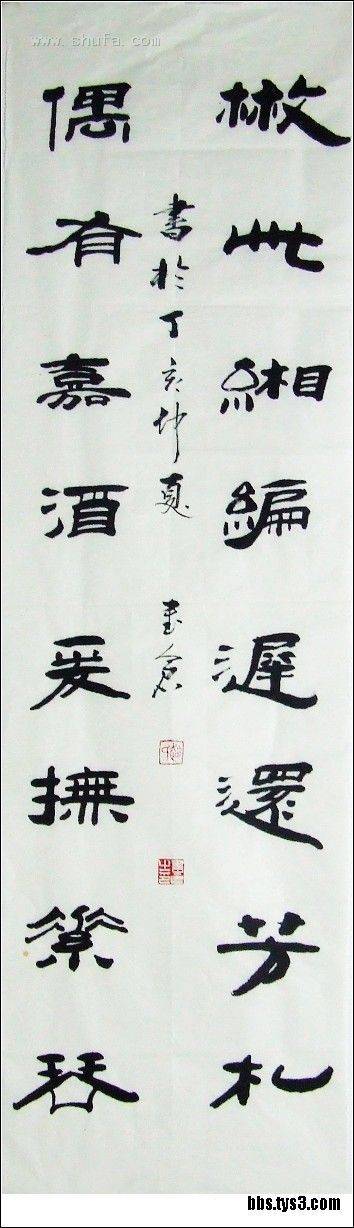 www.shufa.com
㪔此緗編遲還芳札
偶有嘉酒爰撫素琴
書於丁亥仲夏
bbs.tys3.com